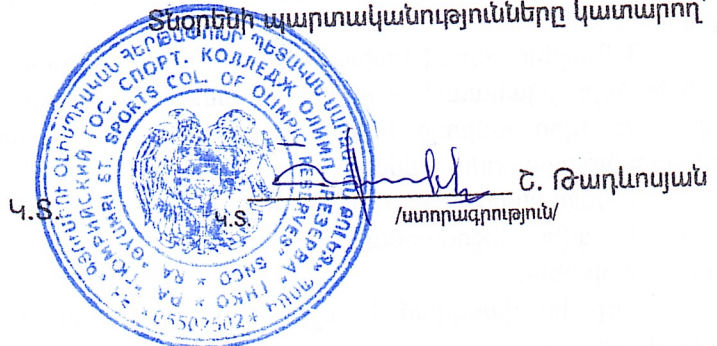 Տնօրենի պարտականությունները կատարող՝
Կ.Տ.
Կ.Տ.
Շ. Թադևոսյան
/ստորագրություն/
ГЮМРИЙСКИЙ ГОС. СПОРТ. КОЛЛЕДЖ ОЛИМП. РЕЗЕРВА" ГНКО * РА
"GYUMRI ST. SPORTS COL. OF OLIMPIC RESERVES" SNCO * RA
* 05502502 *